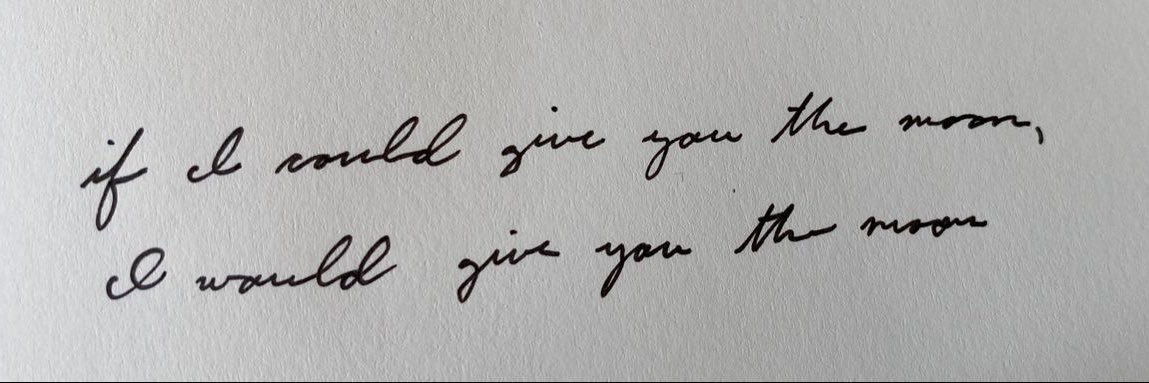 if I could give you the moon,
I would give you the moon